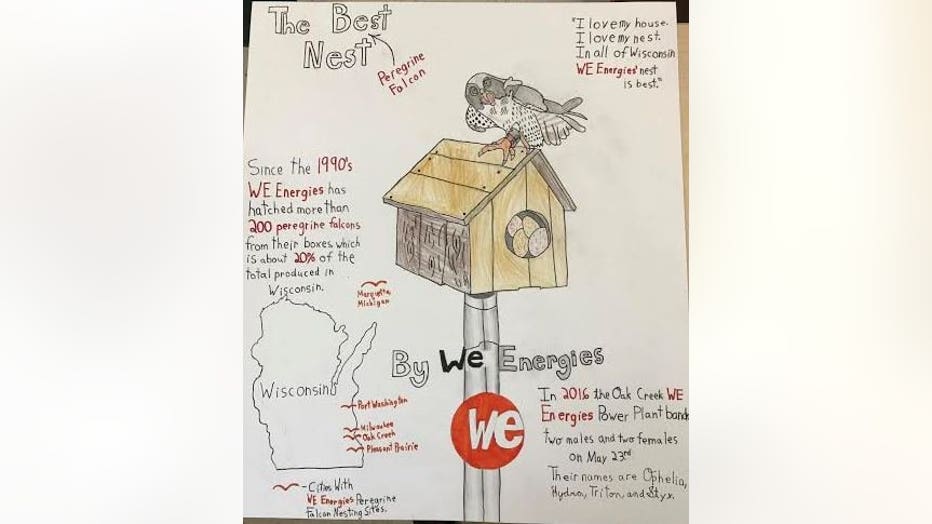 The Best
Nest
Peregrine
Falcon
"I love my house.
I love my nest.
In all of Wisconsin
WE Energies' nest
is best."
Since the 1990's
WE Energies has
hatched more than
200 peregrine falcons
from their boxes which
is about 20% of the
total produced in
Wisconsin.
Marquette,
Michigan
Wisconsin
Port Washington
Milwaukee
Oak Creek
Pleasant Prairie
- Cities With
WE Energies Peregrine
Falcon Nesting Sites.
By We Energies
we
In 2016 the Oak Creek WE
Energies Power Plant band
two males and two females
on May 23rd
Their names are Ophelia,
Hydra, Triton, and Styx.